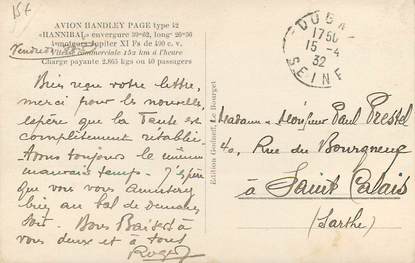 15€
AVION HANDLEY PAGE type 42
«HANNIBAL» envergure 39m62, long 26m36
4 moteurs Jupiter XI Fs de 490 c. v.
Vitesse commerciale 152 km à l'heure
Charge payante 2.865 kgs ou 40 passagers
Vendredi
Bien reçu votre lettre,
merci pour les nouvelles,
espère que la Tante est
complètement rétablie.
Tems toujours le même
mauvais temps. J'espère
que vous vous amuserez
bien au bal de demain
soir. Bons Baisers à
vous deux et à tous
Roger
Edition Godneff, Le Bourget
DUGNY
1750
15-4
32
SEINE
Madame & Monsieur Paul Prestel
40, Rue du Bourgneuf
à Saint Calais
(Sarthe)